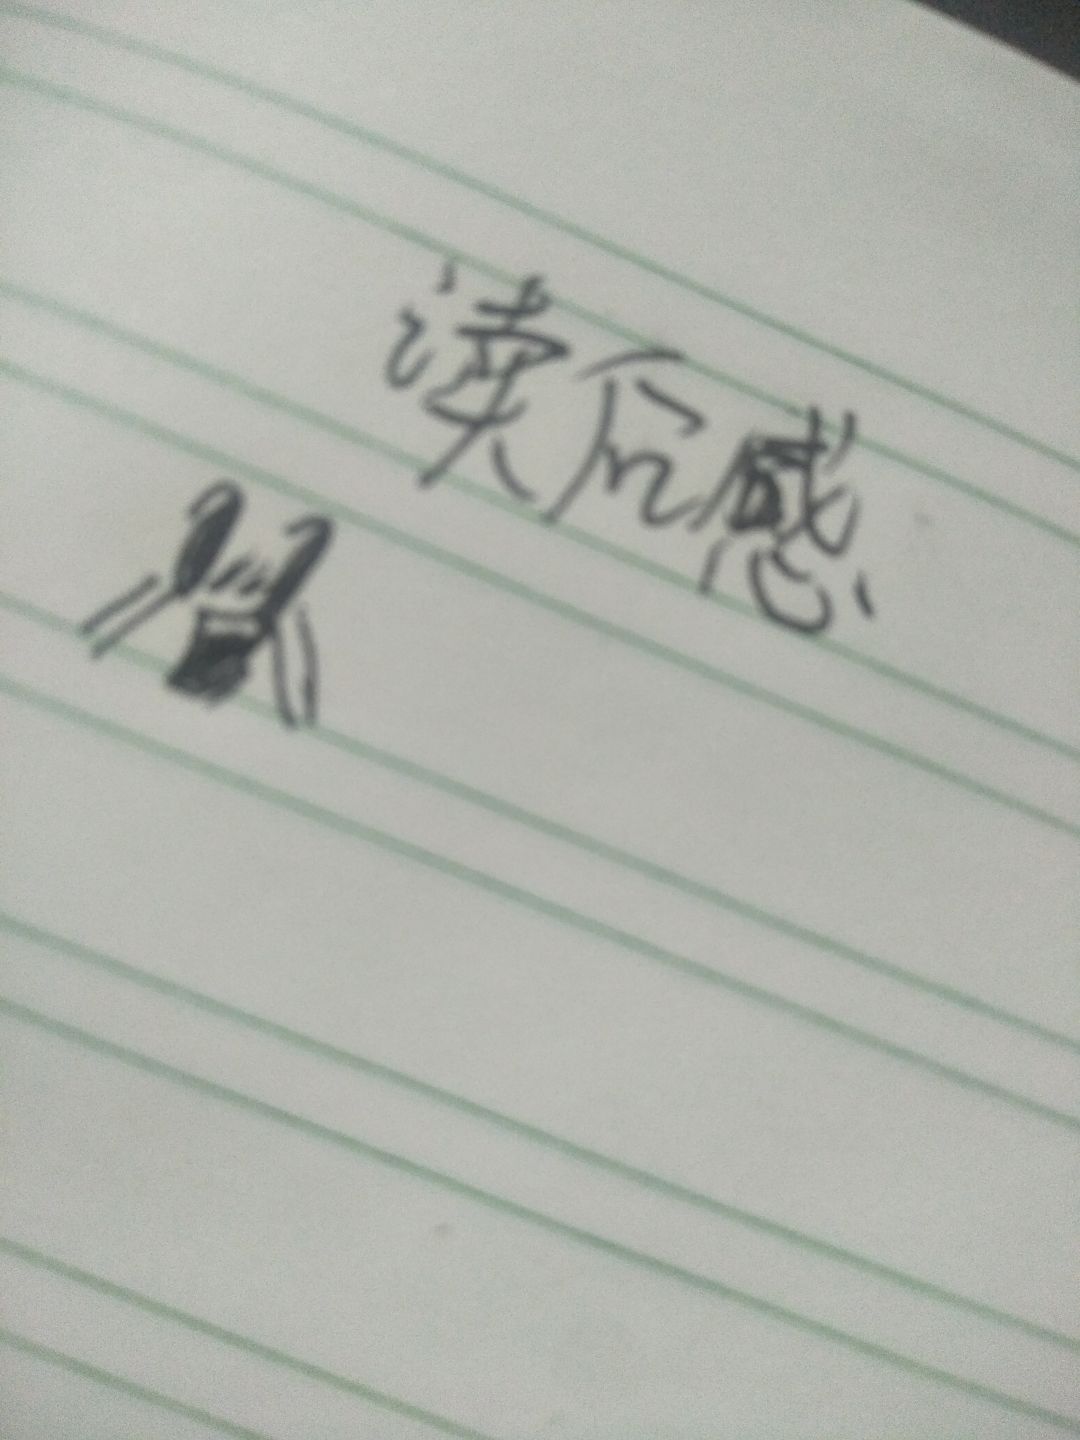 读后感